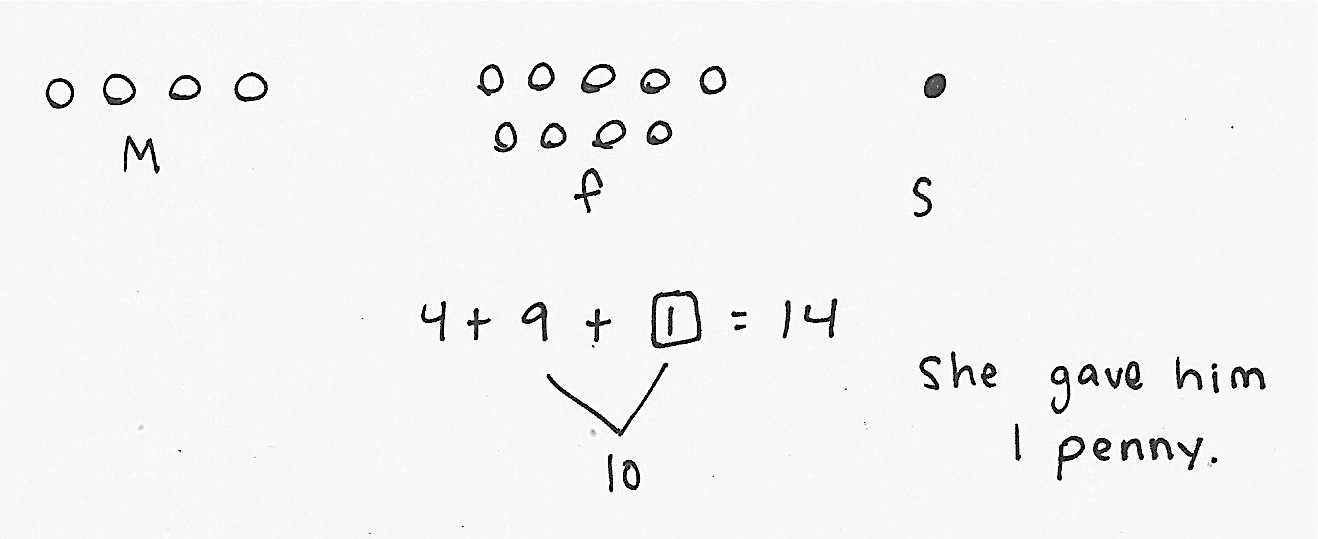 M f S
4 + 9 + 1 = 14
10
She gave him
1 penny.